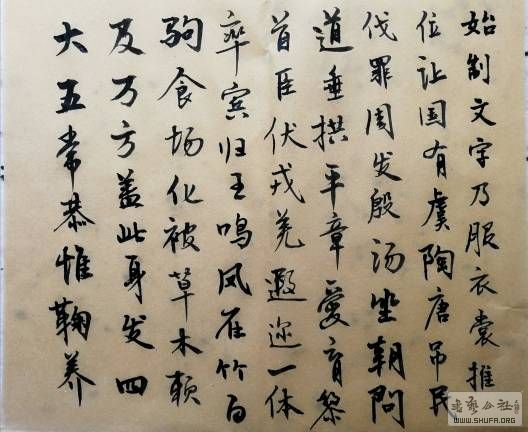 始制文字乃服衣裳推
位让国有虞陶唐吊民
伐罪周发殷汤坐朝问
道垂拱平章爱育黎
首臣伏戎羌遐迩一体
率宾归王鸣凤在竹白
驹食场化被草木赖
及万方盖此身发四
大五常恭惟鞠养
書藝公社
WWW.SHUFA.ORG